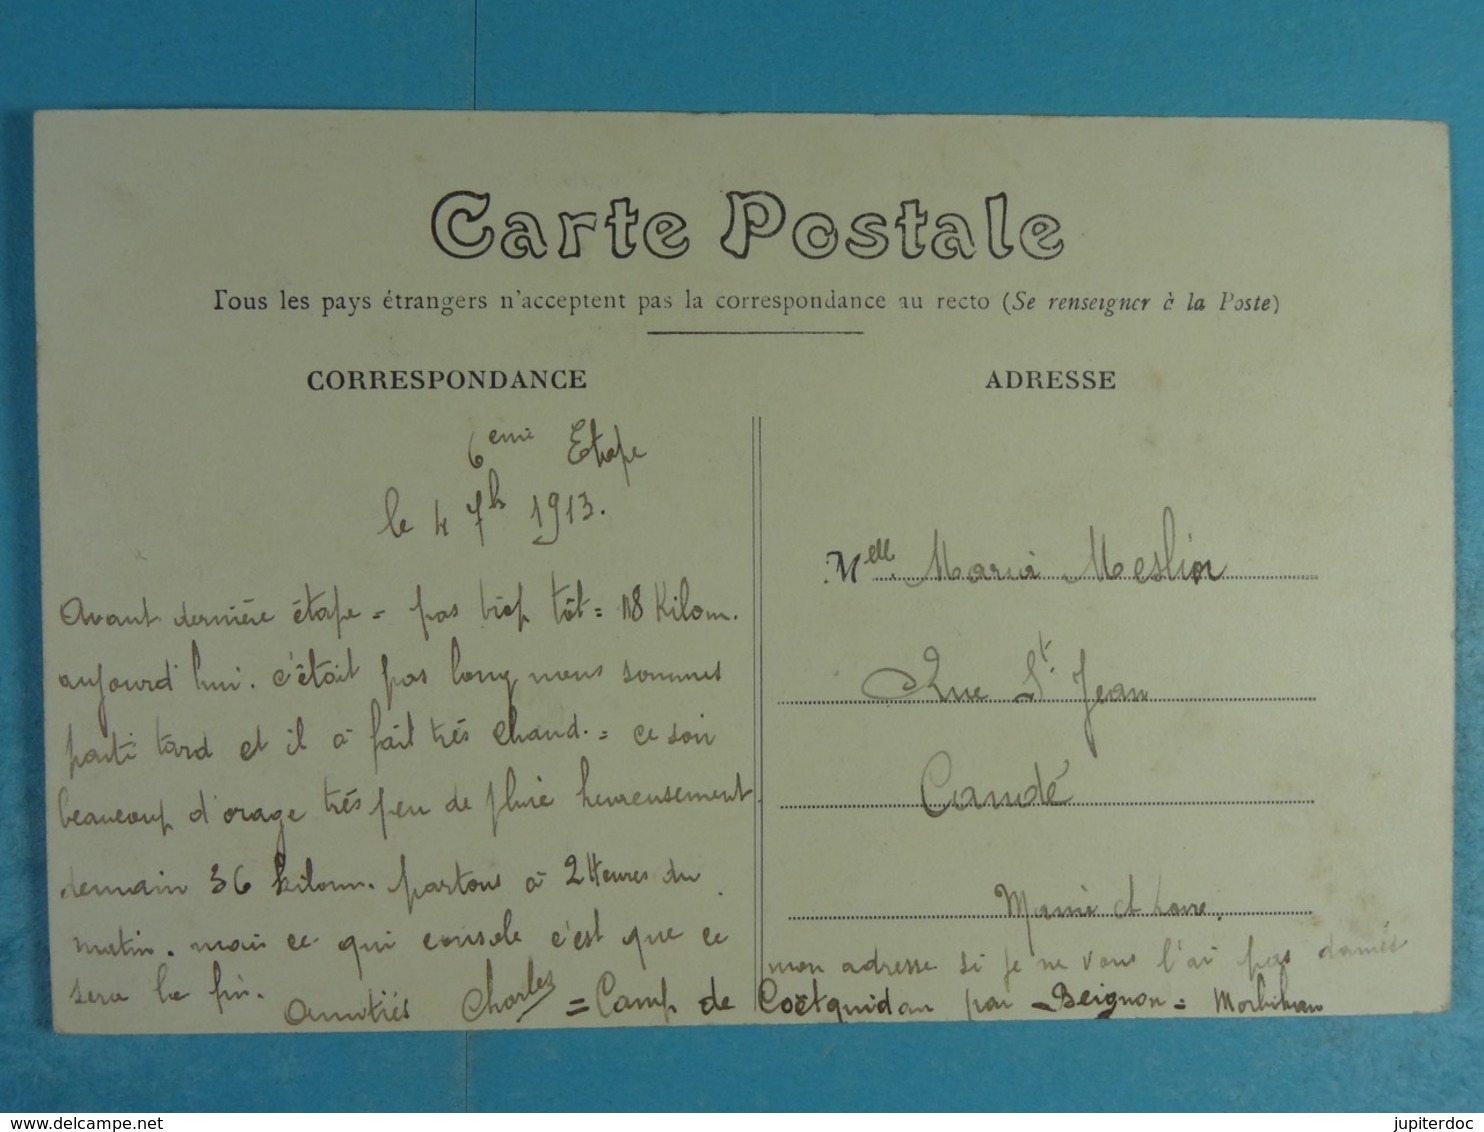 Carte Postale
Tous les pays étrangers n'acceptent pas la correspondance au recto (Se renseigner à la Poste)
CORRESPONDANCE
6eme Etape
le 4 7b 1913.
Avant dernière étape = pas trop tôt = 18 Kilom.
aujourd'hui. c'était pas long nous sommes
parti tard et il a fait très chaud. = ce soir
beaucoup d'orage très peu de pluie heureusement
demain 36 kilom. partons à 2 Heures du
matin. mais ce qui console c'est que ce
sera la fin. Amitiés Charles
ADRESSE
Melle. Maria Meslin
Rue St. Jean
Candé
Maine et Loire.
mon adresse si je ne vous l'ai pas donnés
= Camp de Coëtquidan par Beignon = Morbihan
delcampe.net
jupiterdoc